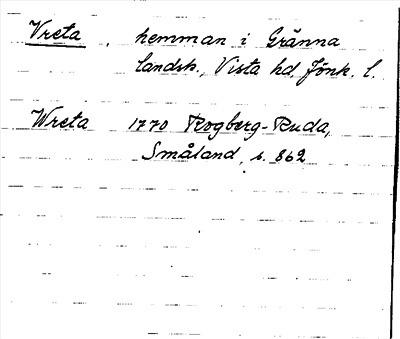 Vreta, hemman i Gränna
landsk., Vista hd, Jönk. l.
Wreta 1770 Rogberg-Ruda,
Småland, s. 862